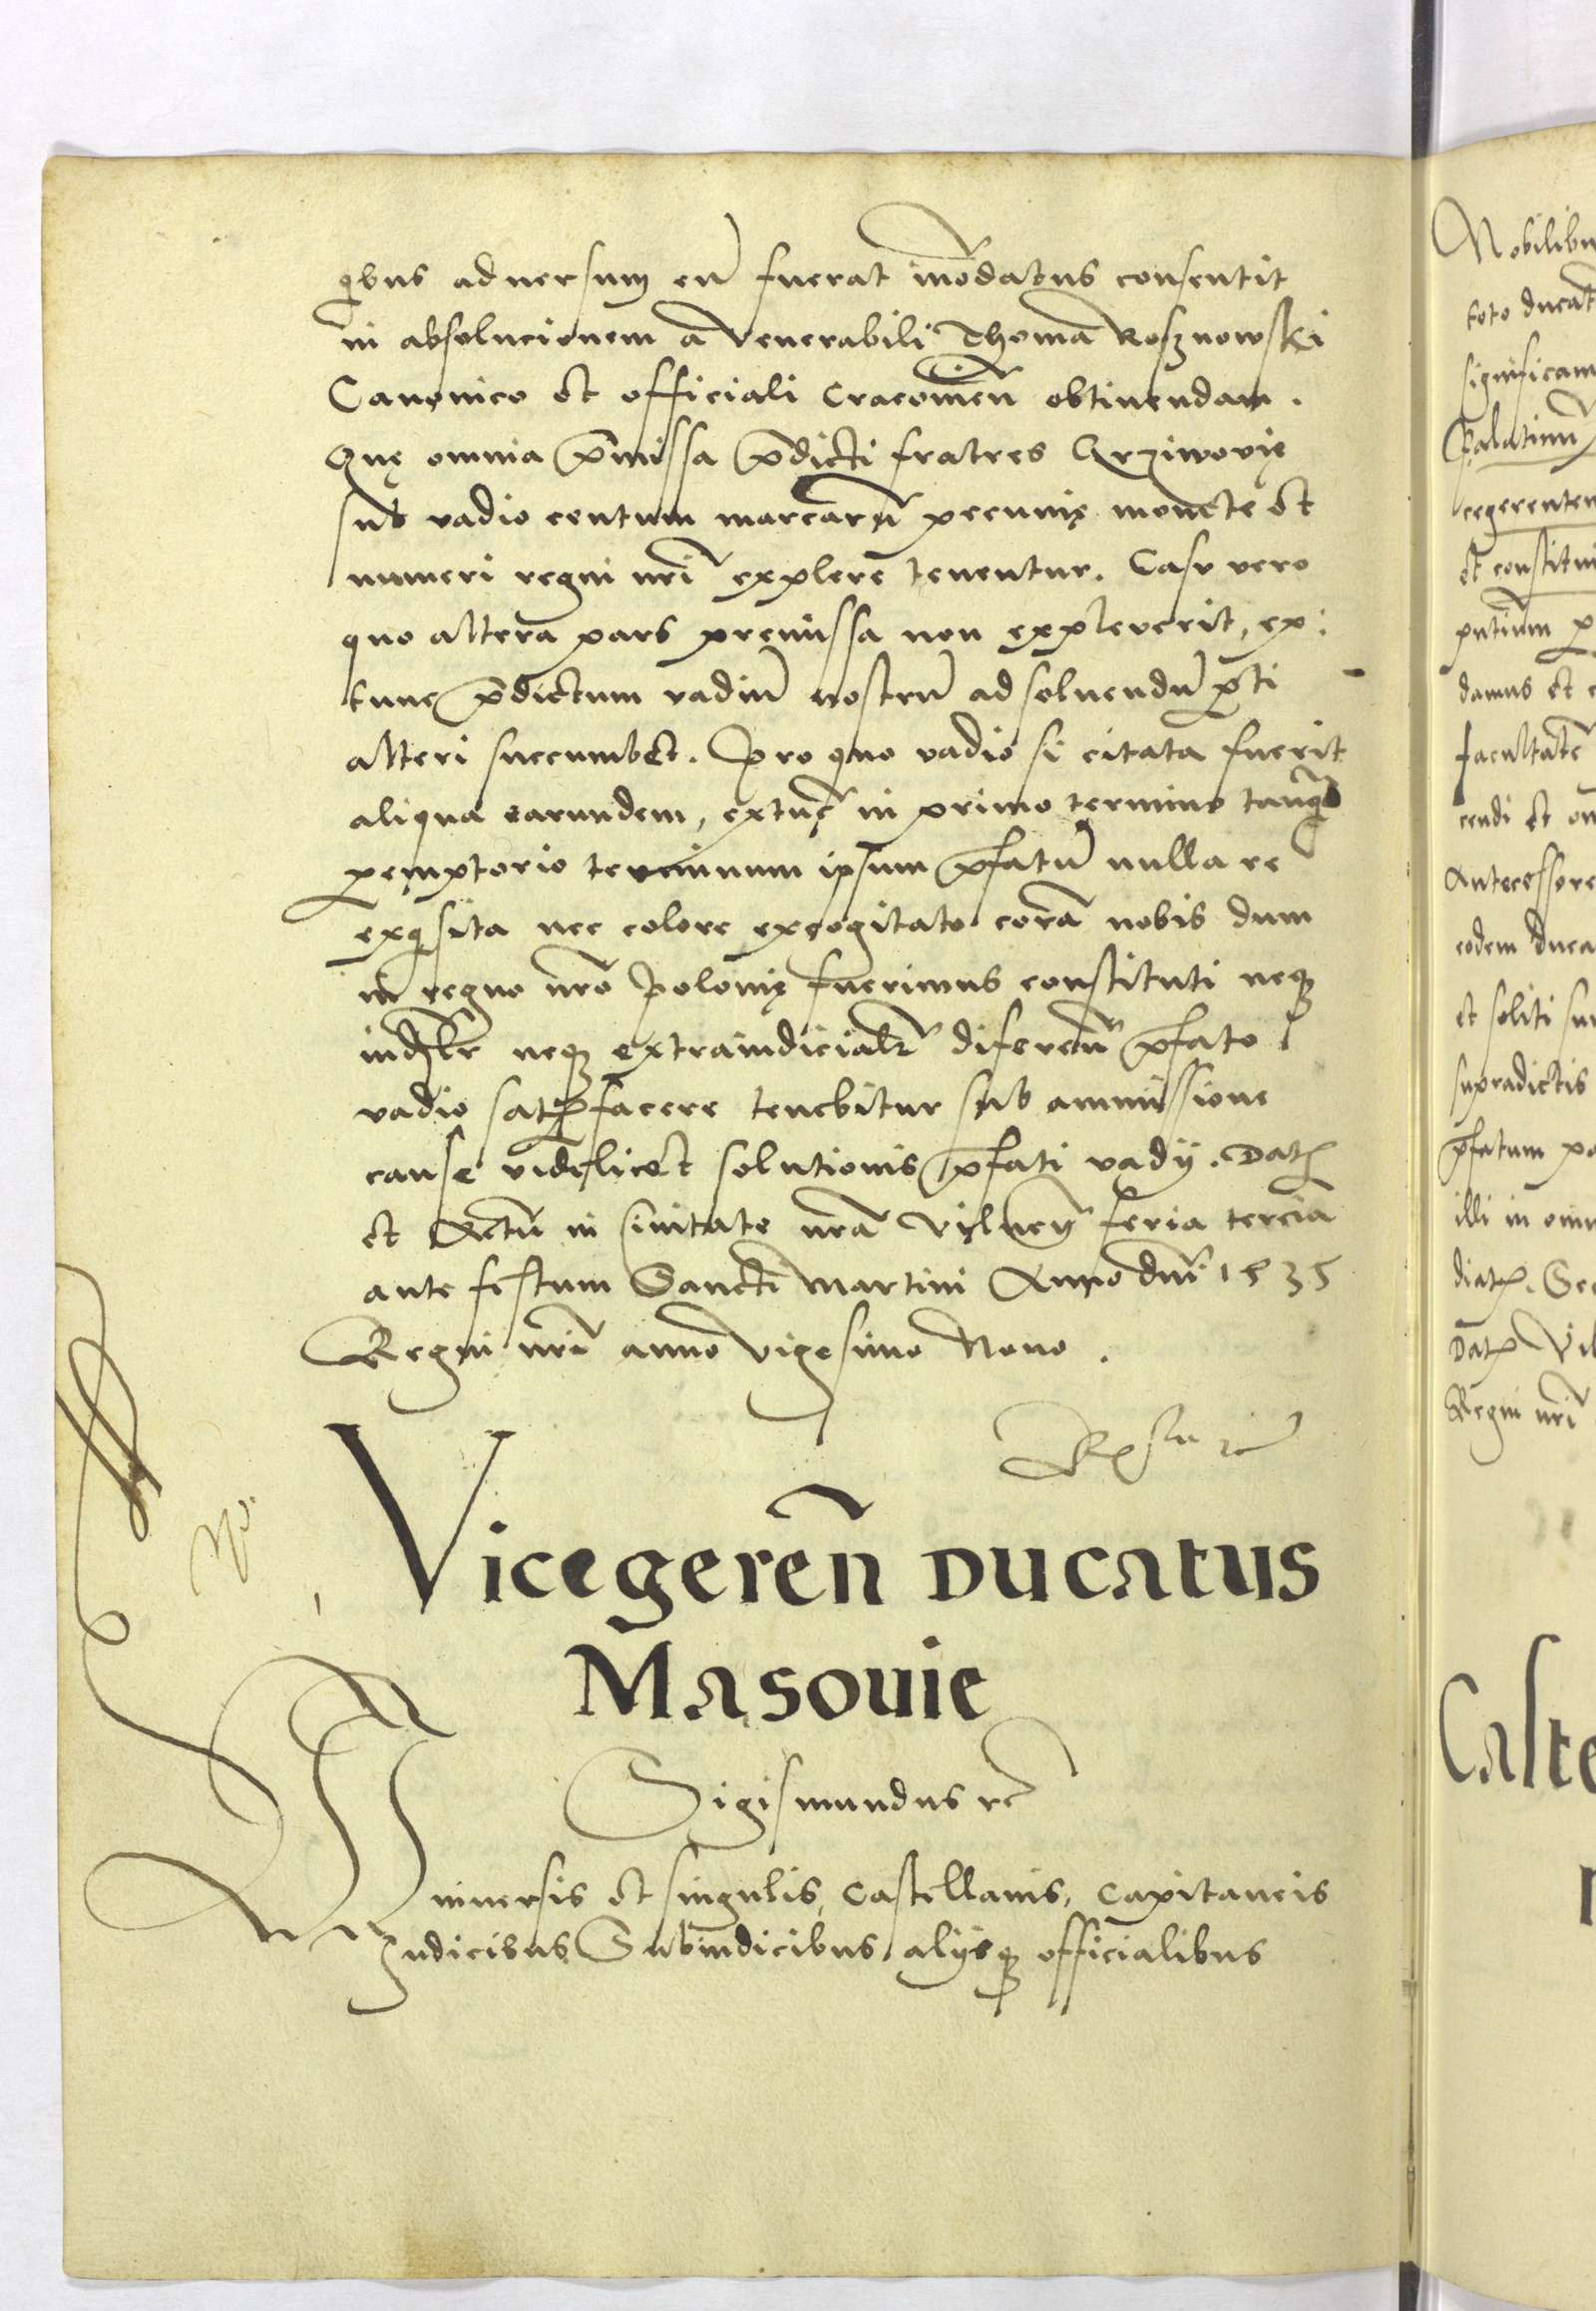 qbus aduersum eu͂ fuerat in͞nodatus consentit
in absolucionem a venerabili Thoma Rosznowski
Canonico et officiali Cracouien͂ obtinendam.
Quę omnia p͞missa p͞dicti fratres Grziwovię
sub vadio centum marcaru͂ pecunię monete et
numeri regni nr͞i explere tenentur. Casu vero
quo altera pars premissa non expleverit, ex:
tunc p͞dictum vadiu͂ nostru͂ ad soluendu͂ p͞ti
alteri succumbet. Pro quo vadio si citata fuerit
aliqua earundem, extu͂c in primo termino tanq͂
peremptorio terminum ipsum p͞fatu͂ nulla re
exqsita nec colore excogitato cora͂ nobis dum
in regno nr͞o Polonię fuerimus constituti neqꝫ
iudlr͞ neqꝫ extraiudicialr͞ diferen͂ p͞fato
vadio satisfacere tenebitur sub ammissione
cause videlicet solutionis p͞fati vadij. Datꝫ
et Actu͂ in Ciuitate nr͞a Vilnen͂ feria tercia
ante festum Sancti Martini Anno dn͞i 1535
Regni nr͞i anno vigesimo Nono.
Vicegeren͂ Ducatus
Masouie
Sigismundus rc͂
Vniuersis et singulis, Castellanis, Capitaneis
Iudicibus, Subiudicibus alijsqꝫ officialibus
Nobilibu
toto ducat
significam
Palatinu͂
cegerenten
et constitui
damus et c
facultate͂
cendi et om
Antecessore
eodem duca
et soliti su
supradictis
p͞fatum po
illi in omn
Datꝫ Vil
Regni nr͞i
Caste